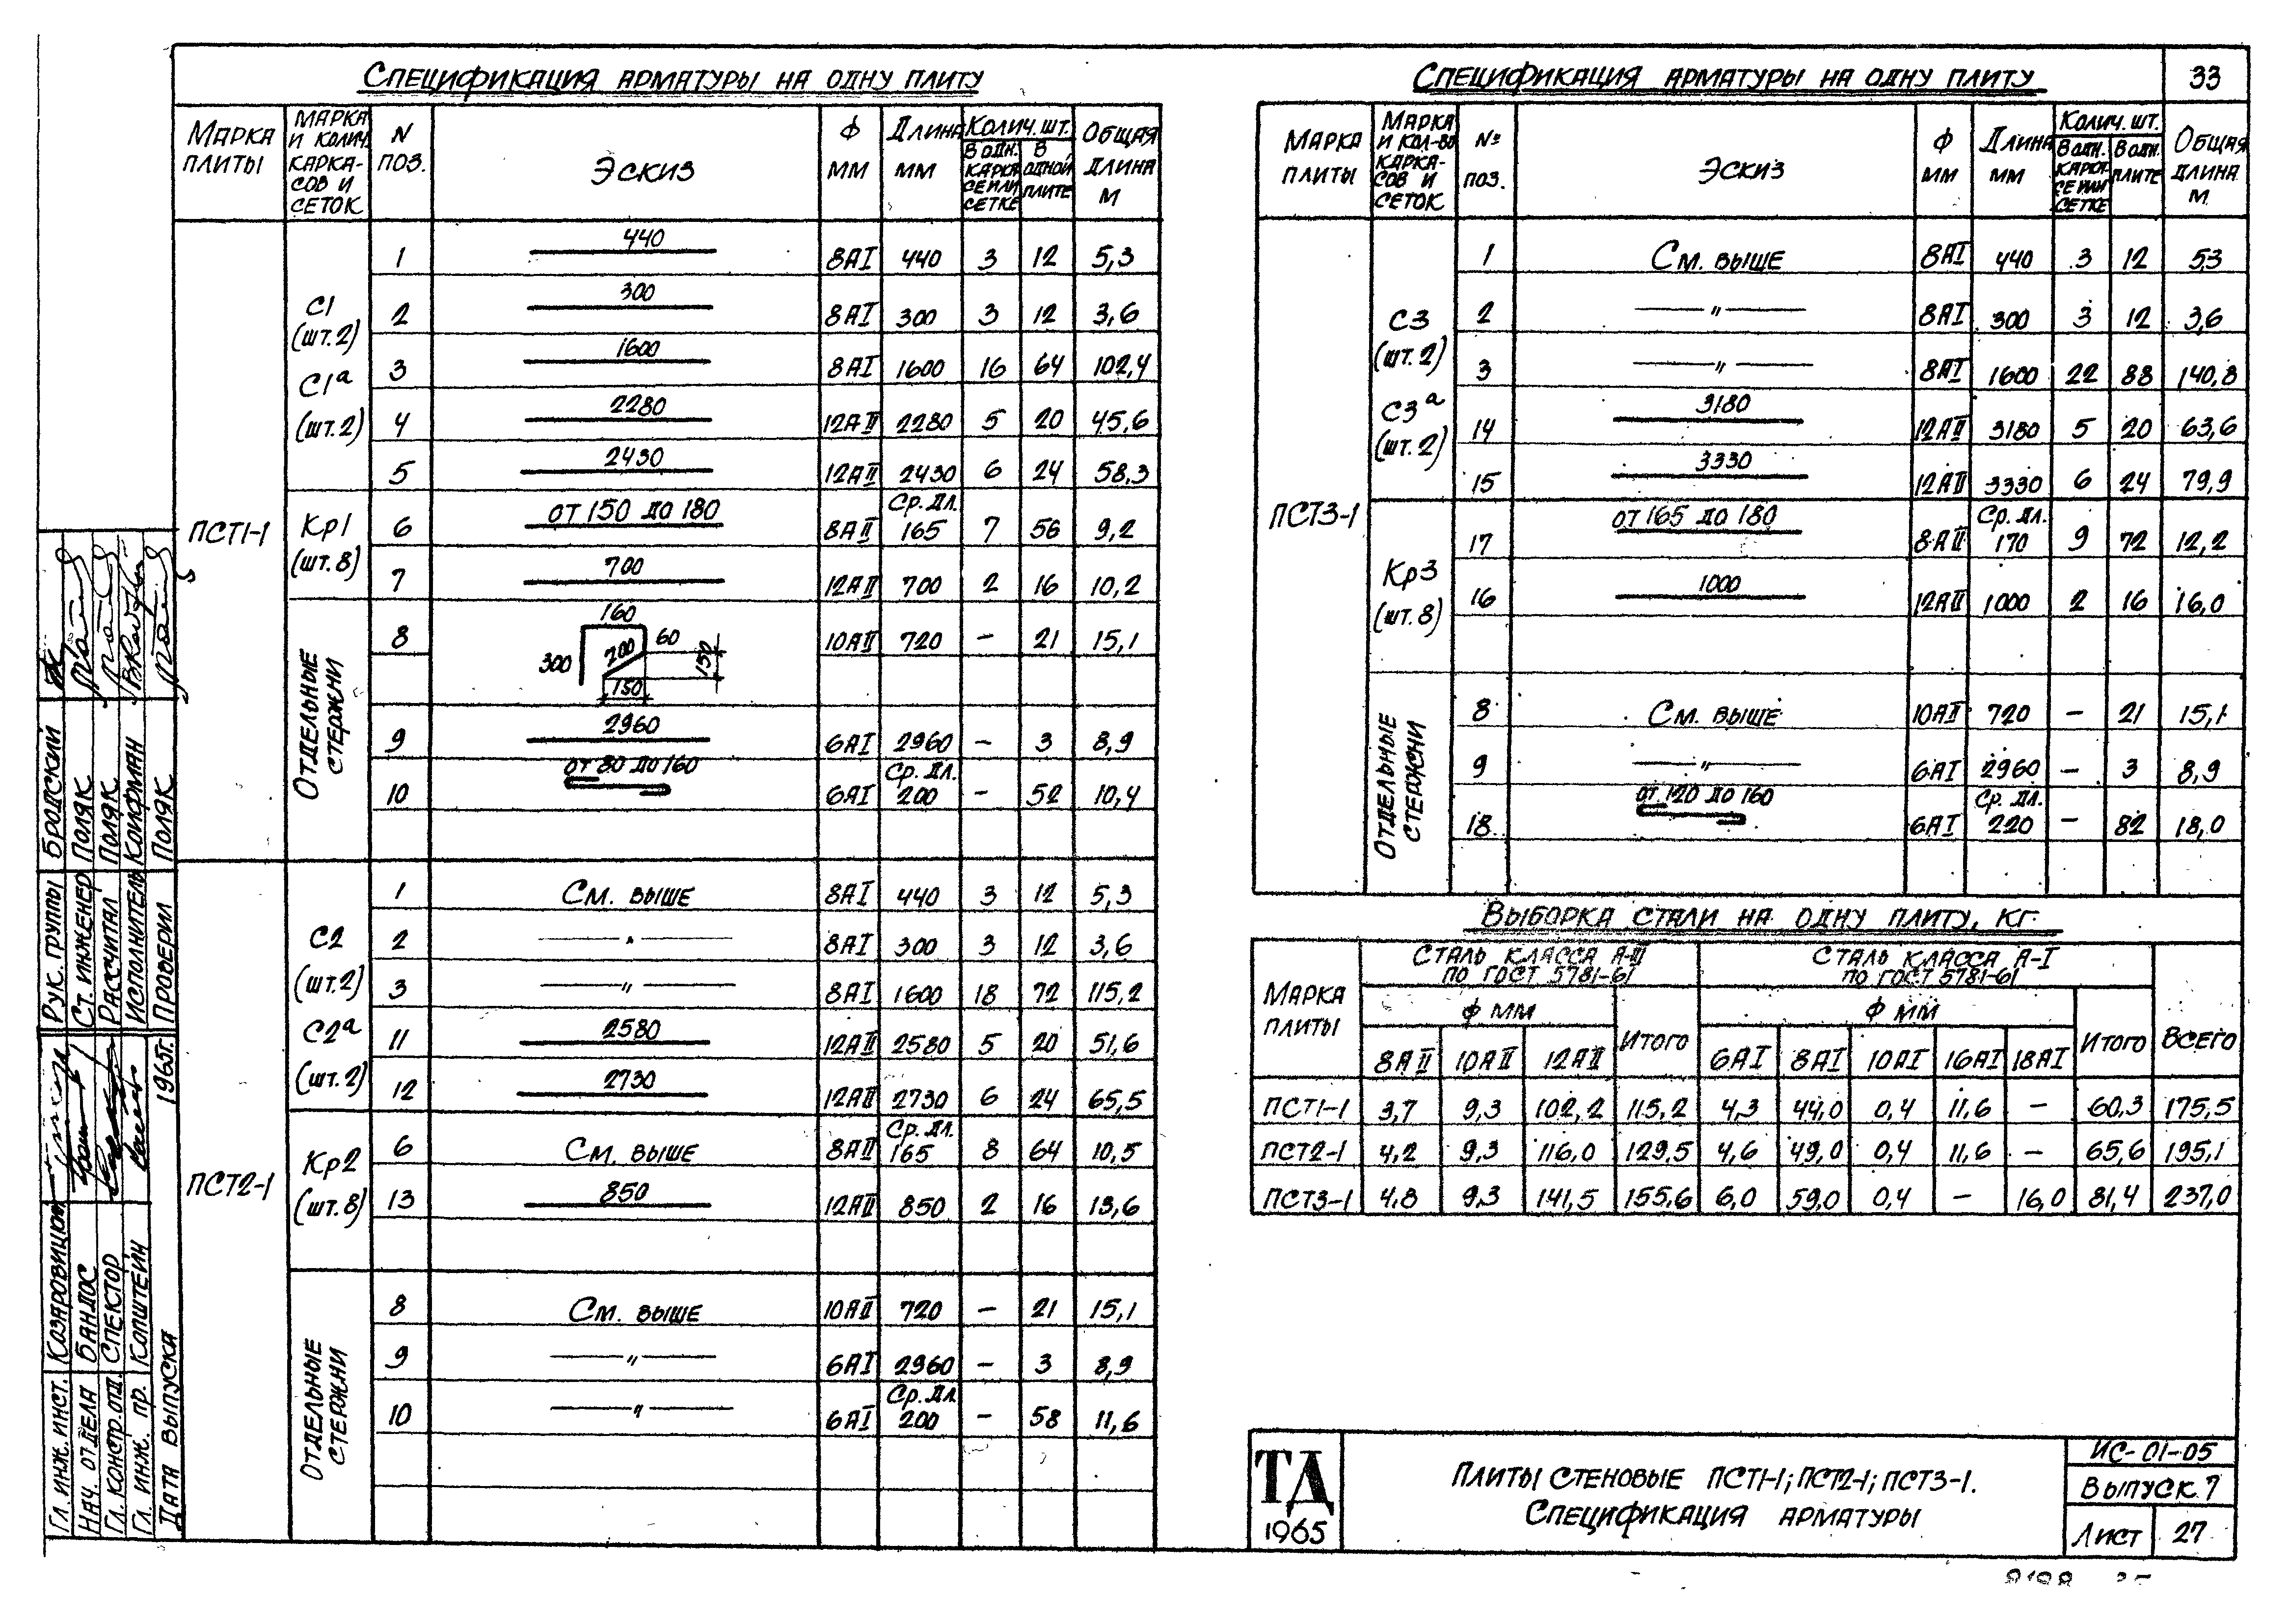 Спецификация арматуры на одну плиту
Марка плиты | Марка и колич. каркасов и сеток | N поз. | Эскиз | Ф мм | Длина мм | Колич. шт. | Общая длина м
В одн. каркасе или сетке | В одной плите
ПСТ1-1
С1 (шт.2) С1а (шт.2)
1 | 440 | 8АI | 440 | 3 | 12 | 5,3
2 | 300 | 8АI | 300 | 3 | 12 | 3,6
3 | 1600 | 8АI | 1600 | 16 | 64 | 102,4
4 | 2280 | 12АII | 2280 | 5 | 20 | 45,6
5 | 2430 | 12АII | 2430 | 6 | 24 | 58,3
Кр1 (шт.8)
6 | от 150 до 180 | 8АII | Ср. дл. 165 | 7 | 56 | 9,2
7 | 700 | 12АII | 700 | 2 | 16 | 10,2
Отдельные стержни
8 | 160 60 300 200 150 150 | 10АII | 720 | – | 21 | 15,1
9 | 2960 | 6АI | 2960 | – | 3 | 8,9
10 | от 80 до 160 | 6АI | Ср. дл. 200 | – | 52 | 10,4
ПСТ2-1
С2 (шт.2) С2а (шт.2)
1 | См. выше | 8АI | 440 | 3 | 12 | 5,3
2 | — " — | 8АI | 300 | 3 | 12 | 3,6
3 | — " — | 8АI | 1600 | 18 | 72 | 115,2
11 | 2580 | 12АII | 2580 | 5 | 20 | 51,6
12 | 2730 | 12АII | 2730 | 6 | 24 | 65,5
Кр2 (шт.8)
6 | См. выше | 8АII | Ср. дл. 165 | 8 | 64 | 10,5
13 | 850 | 12АII | 850 | 2 | 16 | 13,6
Отдельные стержни
8 | См. выше | 10АII | 720 | – | 21 | 15,1
9 | — " — | 6АI | 2960 | – | 3 | 8,9
10 | — " — | 6АI | Ср. дл. 200 | – | 58 | 11,6
Спецификация арматуры на одну плиту
33
Марка плиты | Марка и кол-во каркасов и сеток | № поз. | Эскиз | Ф мм | Длина мм | Колич. шт. | Общая длина м
В одн. каркасе или сетке | В одн. плите
ПСТ3-1
С3 (шт.2) С3а (шт.2)
1 | См. выше | 8АI | 440 | 3 | 12 | 53
2 | — " — | 8АI | 300 | 3 | 12 | 3,6
3 | — " — | 8АI | 1600 | 22 | 88 | 140,8
14 | 3180 | 12АII | 3180 | 5 | 20 | 63,6
15 | 3330 | 12АII | 3330 | 6 | 24 | 79,9
Кр3 (шт.8)
17 | от 165 до 180 | 8АII | Ср. дл. 170 | 9 | 72 | 12,2
16 | 1000 | 12АII | 1000 | 2 | 16 | 16,0
Отдельные стержни
8 | См. выше | 10АII | 720 | – | 21 | 15,1
9 | — " — | 6АI | 2960 | – | 3 | 8,9
18 | от 120 до 160 | 6АI | Ср. дл. 220 | – | 82 | 18,0
Выборка стали на одну плиту, кг.
Марка плиты | Сталь класса А-II по ГОСТ 5781-61 | Сталь класса А-I по ГОСТ 5781-61 | Всего
Ф мм | Итого | Ф мм | Итого
8АII | 10АII | 12АII | 6АI | 8АI | 10АI | 16АI | 18АI
ПСТ1-1 | 3,7 | 9,3 | 102,2 | 115,2 | 4,3 | 44,0 | 0,4 | 11,6 | – | 60,3 | 175,5
ПСТ2-1 | 4,2 | 9,3 | 116,0 | 129,5 | 4,6 | 49,0 | 0,4 | 11,6 | – | 65,6 | 195,1
ПСТ3-1 | 4,8 | 9,3 | 141,5 | 155,6 | 6,0 | 59,0 | 0,4 | – | 16,0 | 81,4 | 237,0
ТД
1965
Плиты стеновые ПСТ1-1; ПСТ2-1; ПСТ3-1.
Спецификация арматуры
ИС-01-05
Выпуск 7
Лист 27
Рук. группы Бродский
Ст. инженер Поляк
Рассчитал Поляк
Исполнитель Койфман
Проверил Поляк
Гл. инж. инст.
Нач. отдела Бандос
Гл. констр. отд. Спектор
Гл. инж. пр. Копштейн
Дата выпуска 1965г.